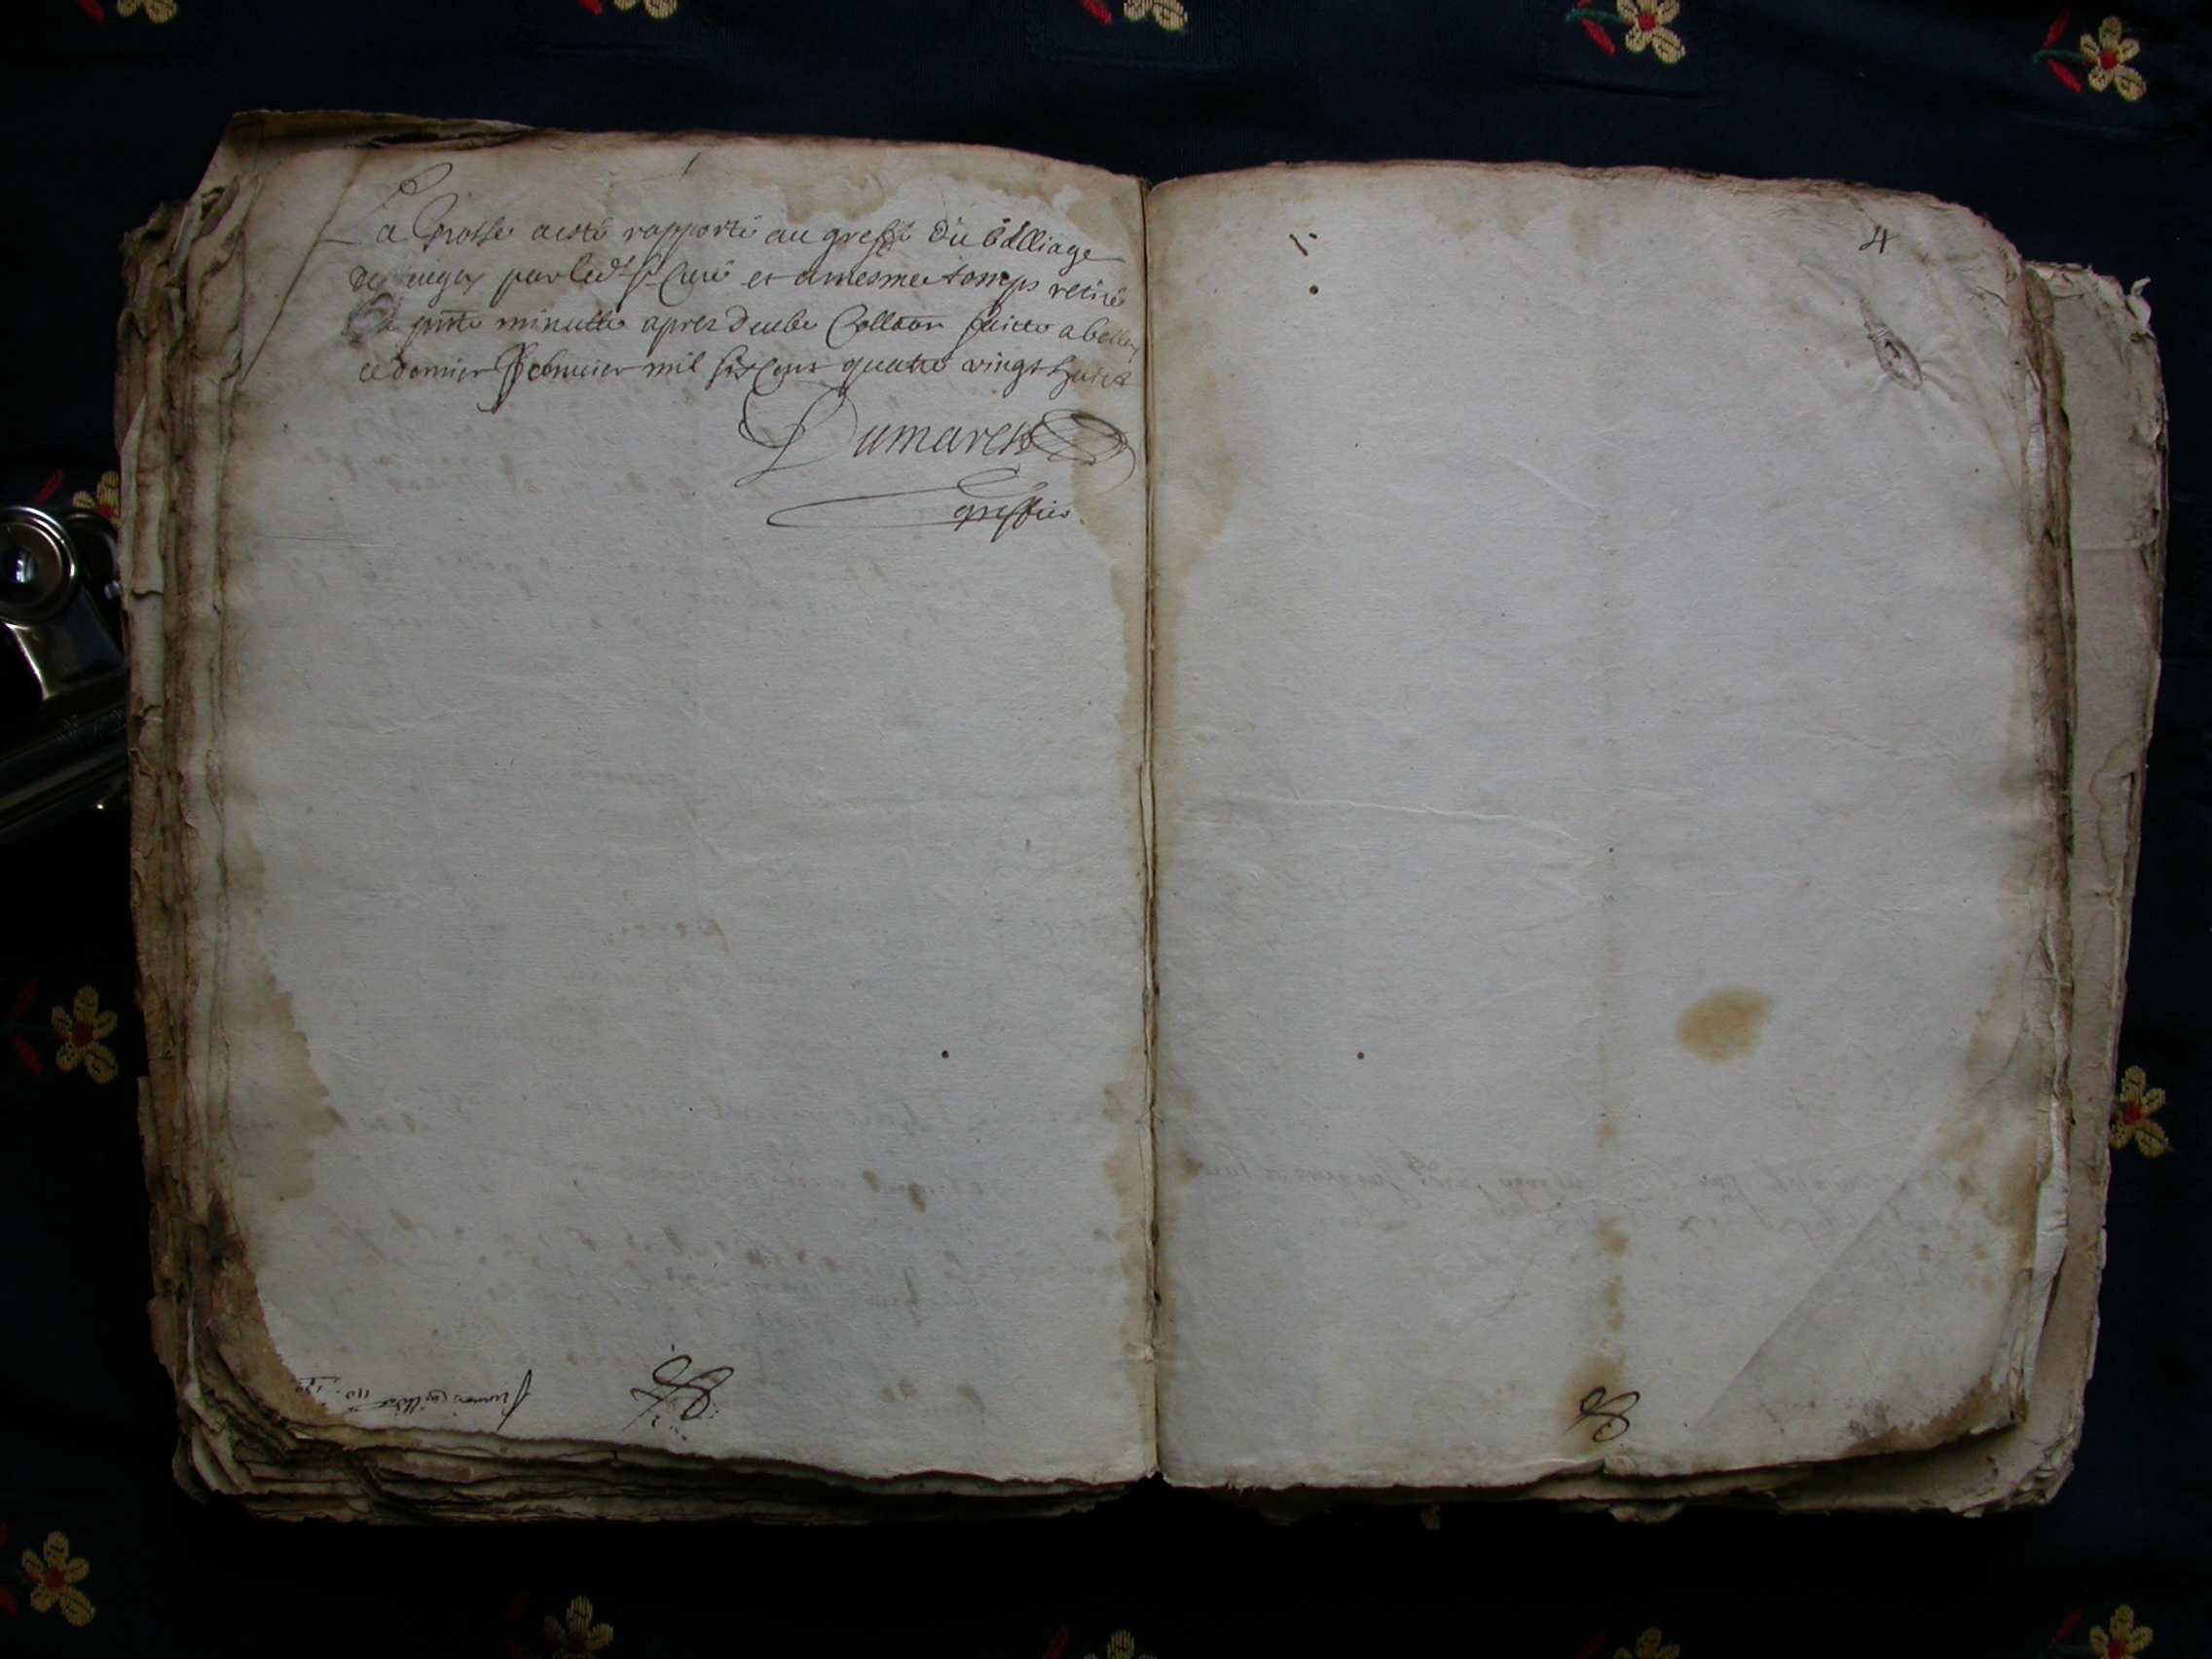 La Grosse a esté rapporté au greffe du bailliage
de par led.t Sr Curé et a mesme temps retiré
la pnte minutte apres deube Collaon faicte a belley
ce dernier Febvrier mil six cens quatre vingt huict
Dumarest
greffier
4